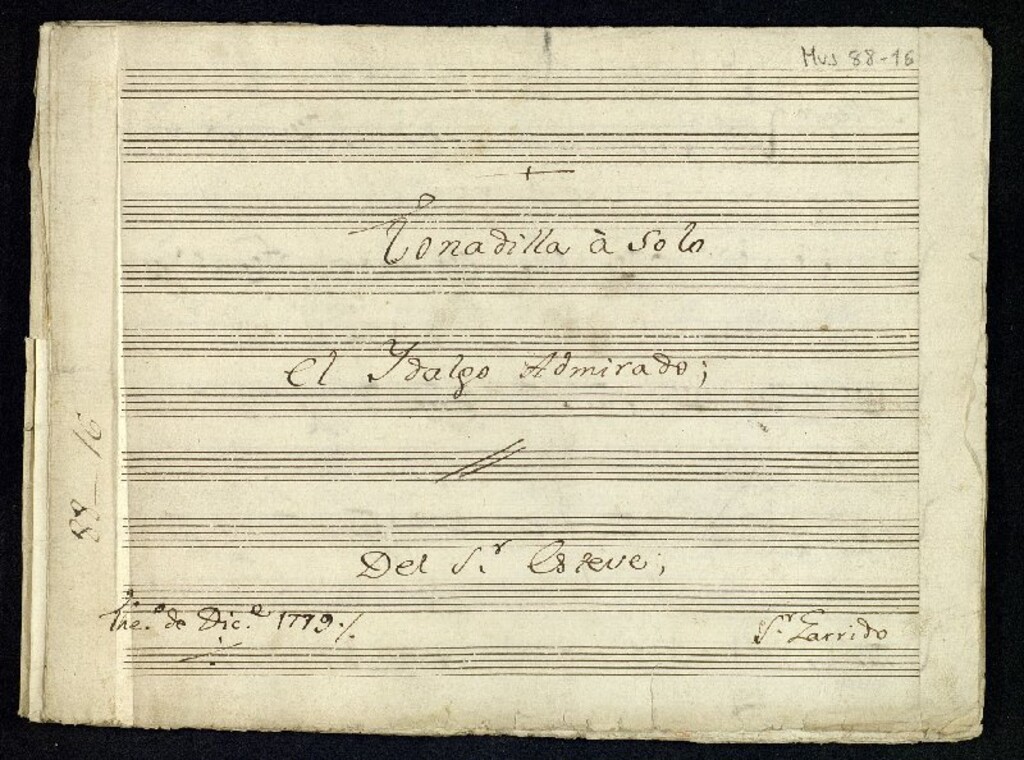 Mus 88-16
Tonadilla à Solo
el Ydalgo Admirado;
Del S.r Esteve;
de Dic.e 1779./.
S.r Garrido
88-16